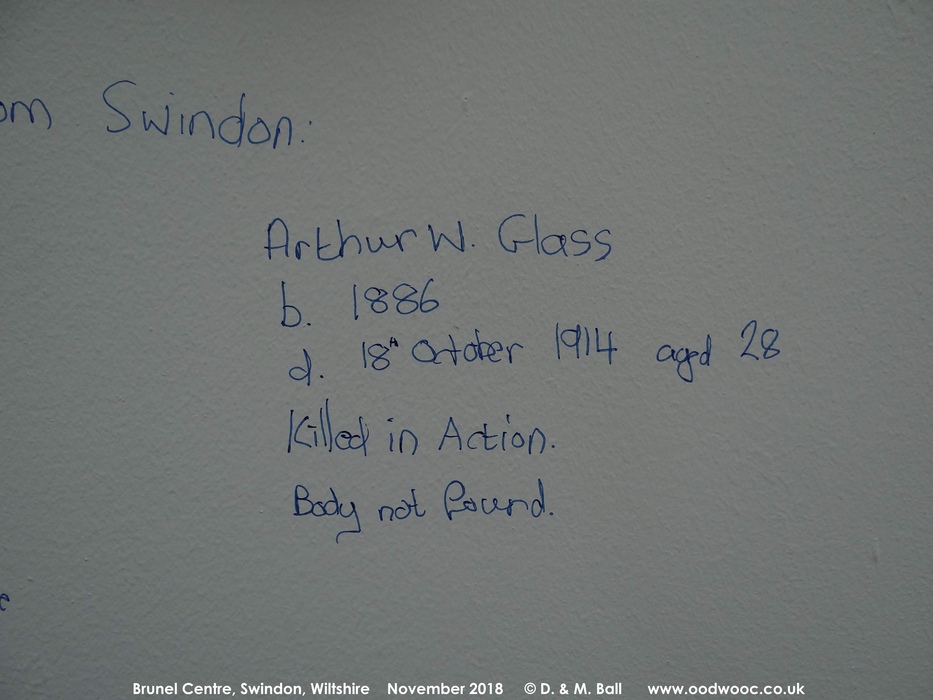 om Swindon.
Arthur W. Glass
b. 1886
d. 18th October 1914 aged 28
Killed in Action.
Body not found.
e
Brunel Centre, Swindon, Wiltshire November 2018 © D. & M. Ball www.oodwooc.co.uk